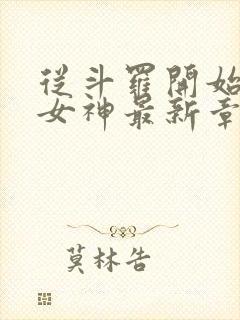 從斗羅開始
女神最新章
莫林告